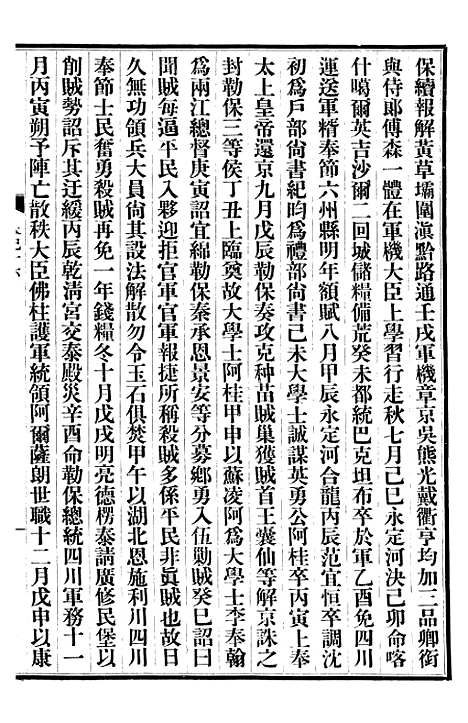 保續報解黃草壩圍滇黔路通壬戌軍機章京吳熊光戴衢亨均加三品卿銜
與侍郞傅森一體在軍機大臣上學習行走秋七月己巳永定河決己卯命喀
什噶爾英吉沙爾二回城儲糧備荒癸未都統巴克坦布卒於軍乙酉免四川
運送軍糈奉節六州縣明年額賦八月甲辰永定河合龍丙辰范宜恒卒調沈
初爲戶部尙書紀昀爲禮部尙書己未大學士誠謀英勇公阿桂卒丙寅上奉
太上皇帝還京九月戊辰勒保奏攻克种苗賊巢獲賊首王囊仙等解京誅之
封勒保三等侯丁丑上臨奠故大學士阿桂甲申以蘇凌阿爲大學士李奉翰
爲兩江總督庚寅詔宜綿勒保秦承恩景安等分募鄕勇入伍勦賊癸巳詔曰
聞賊每逼平民入夥迎拒官軍官軍報捷所稱殺賊多係平民非眞賊也故日
久無功領兵大員尙其設法解散勿令玉石俱焚甲午以湖北恩施利川四川
奉節士民奮勇殺賊再免一年錢糧冬十月戊戌明亮德楞泰請廣修民堡以
削賊勢詔斥其迂緩丙辰乾淸宮交泰殿災辛酉命勒保總統四川軍務十一
月丙寅朔予陣亡散秩大臣佛柱護軍統領阿爾薩朗世職十二月戊申以康